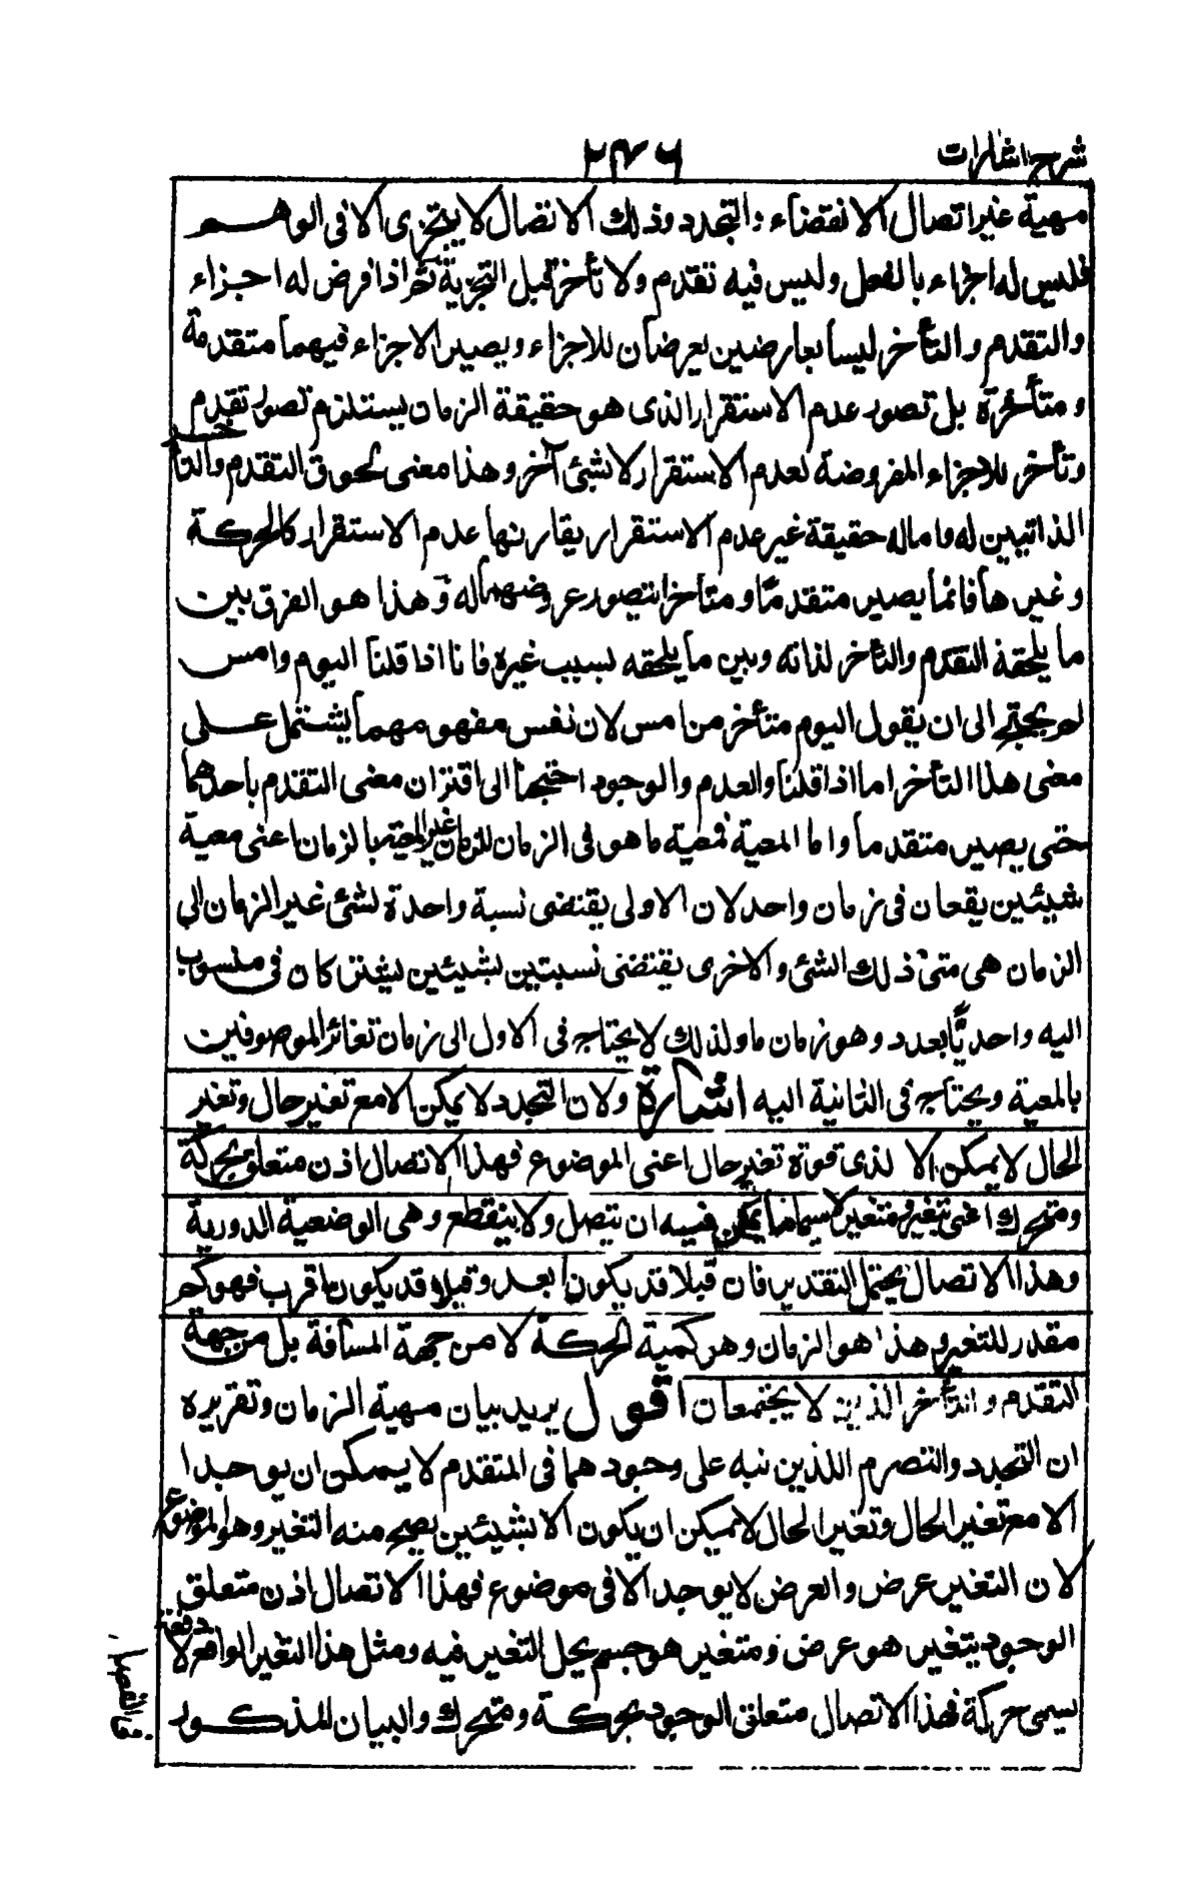 شرح اشارات
٢٣٦
مهية غير اتصال الانقضاء والتجدد وذلك الاتصال لا يتجزى الا فى الوهم
فليس له اجزاء بالفعل وليس فيه تقدم ولا تأخر قبل التجزية ثم اذا فرض له اجزاء
والتقدم والتأخر ليسا بعارضين يعرضان للاجزاء ويصير الاجزاء فيهما متقدمة
ومتأخرة بل تصور عدم الاستقرار الذى هو حقيقة الزمان يستلزم تصور تقدم
وتأخر للاجزاء المفروضة لعدم الاستقرار لا لشئ آخر وهذا معنى لحوق التقدم والتأخر
الذاتيين له واماله حقيقة غير عدم الاستقرار يقارنها عدم الاستقرار كالحركة
وغيرها فانما يصير متقدمًا ومتأخرا بتصور عروضهما له وهذا هو الفرق بين
ما يلحقه التقدم والتأخر لذاته وبين ما يلحقه لسبب غيره فانا اذا قلنا اليوم وامس
لم يحتج الى ان يقول اليوم متأخر من امس لان نفس مفهومهما يشتمل على
معنى هذا التأخر اما اذا قلنا والعدم والوجود احتجنا الى اقتران معنى التقدم باحدهما
حتى يصير متقدما واما المعية فمعية ما هو فى الزمان للزمان غير المعية بالزمان اعنى معية
شيئين يقعان فى زمان واحد لان الاولى يقتضى نسبة واحدة لشئ غير الزمان الى
الزمان هى متى ذلك الشئ والاخرى يقتضى نسبتين لشيئين يشتركان فى منسوب
اليه واحد بالعدد وهو زمان ما ولذلك لا يحتاج فى الاول الى زمان تغائر الموصوفين
بالمعية ويحتاج فى الثانية اليه اشارة ولان التجدد لا يمكن الا مع تغير حال وتغير
الحال لا يمكن الا لذى قوة تغير حال اعنى الموضوع فهذا الاتصال اذن متعلق بحركة
ومتحرك اعنى بتغير ومتغير لا سيما ما يمكن فيه ان يتصل ولا ينقطع وهى الوضعية الدورية
وهذا الاتصال يحتمل التقدير فان قبلا قد يكون ابعد وقبلا قد يكون اقرب فهو كم
مقدر للتغير وهذا هو الزمان وهو كمية الحركة لا من جهة المسافة بل من جهة
التقدم والتأخر الذين لا يجتمعان اقول يريد بيان مهية الزمان وتقريره
ان التجدد والتصرم اللذين نبه على وجودهما فى المتقدم لا يمكن ان يوجدا
الا مع تغير الحال وتغير الحال لا يمكن ان يكون الا بشيئين يصح منه التغير وهو الموضوع
لان التغير عرض والعرض لا يوجد الا فى موضوع فهذا الاتصال اذن متعلق
الوجود بتغير هو عرض ومتغير هو جسم يحل التغير فيه ومثل هذا التغير الواقع لا دفعة
يسمى حركة فهذا الاتصال متعلق الوجود بحركة ومتحرك والبيان المذكور